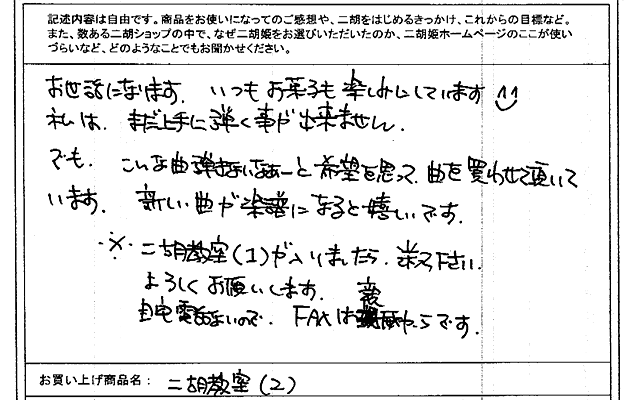 記述内容は自由です。商品をお使いになってのご感想や、二胡をはじめるきっかけ、これからの目標など。
また、数ある二胡ショップの中で、なぜ二胡姫をお選びいただいたのか、二胡姫ホームページのここが使い
づらいなど、どのようなことでもお聞かせください。
お世話になります. いつもお菓子も楽しみにしています
私は、まだ上手に弾く事が出来ません.
でも、こんな曲弾きたいなぁーと希望を思って、曲を買わせて頂いて
います. 新しい曲が楽譜になると嬉しいです.
※ 二胡教室(1)が入りましたら、教えて下さい.
よろしくお願いします.
自宅電話ないので、FAXは
です.
お買い上げ商品名： 二胡教室(2)